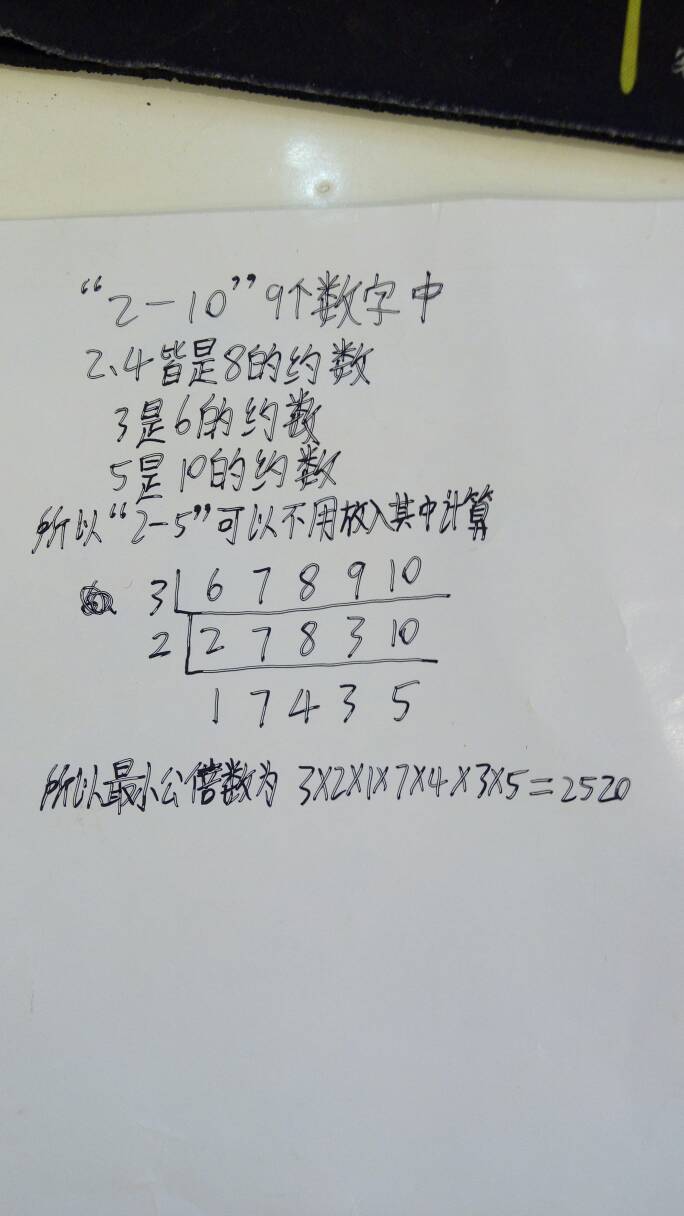 “2-10”9个数字中
2、4皆是8的约数
3是6的约数
5是10的约数
所以“2-5”可以不用放入其中计算
3 6 7 8 9 10
2 2 7 8 3 10
1 7 4 3 5
所以最小公倍数为 3×2×1×7×4×3×5=2520